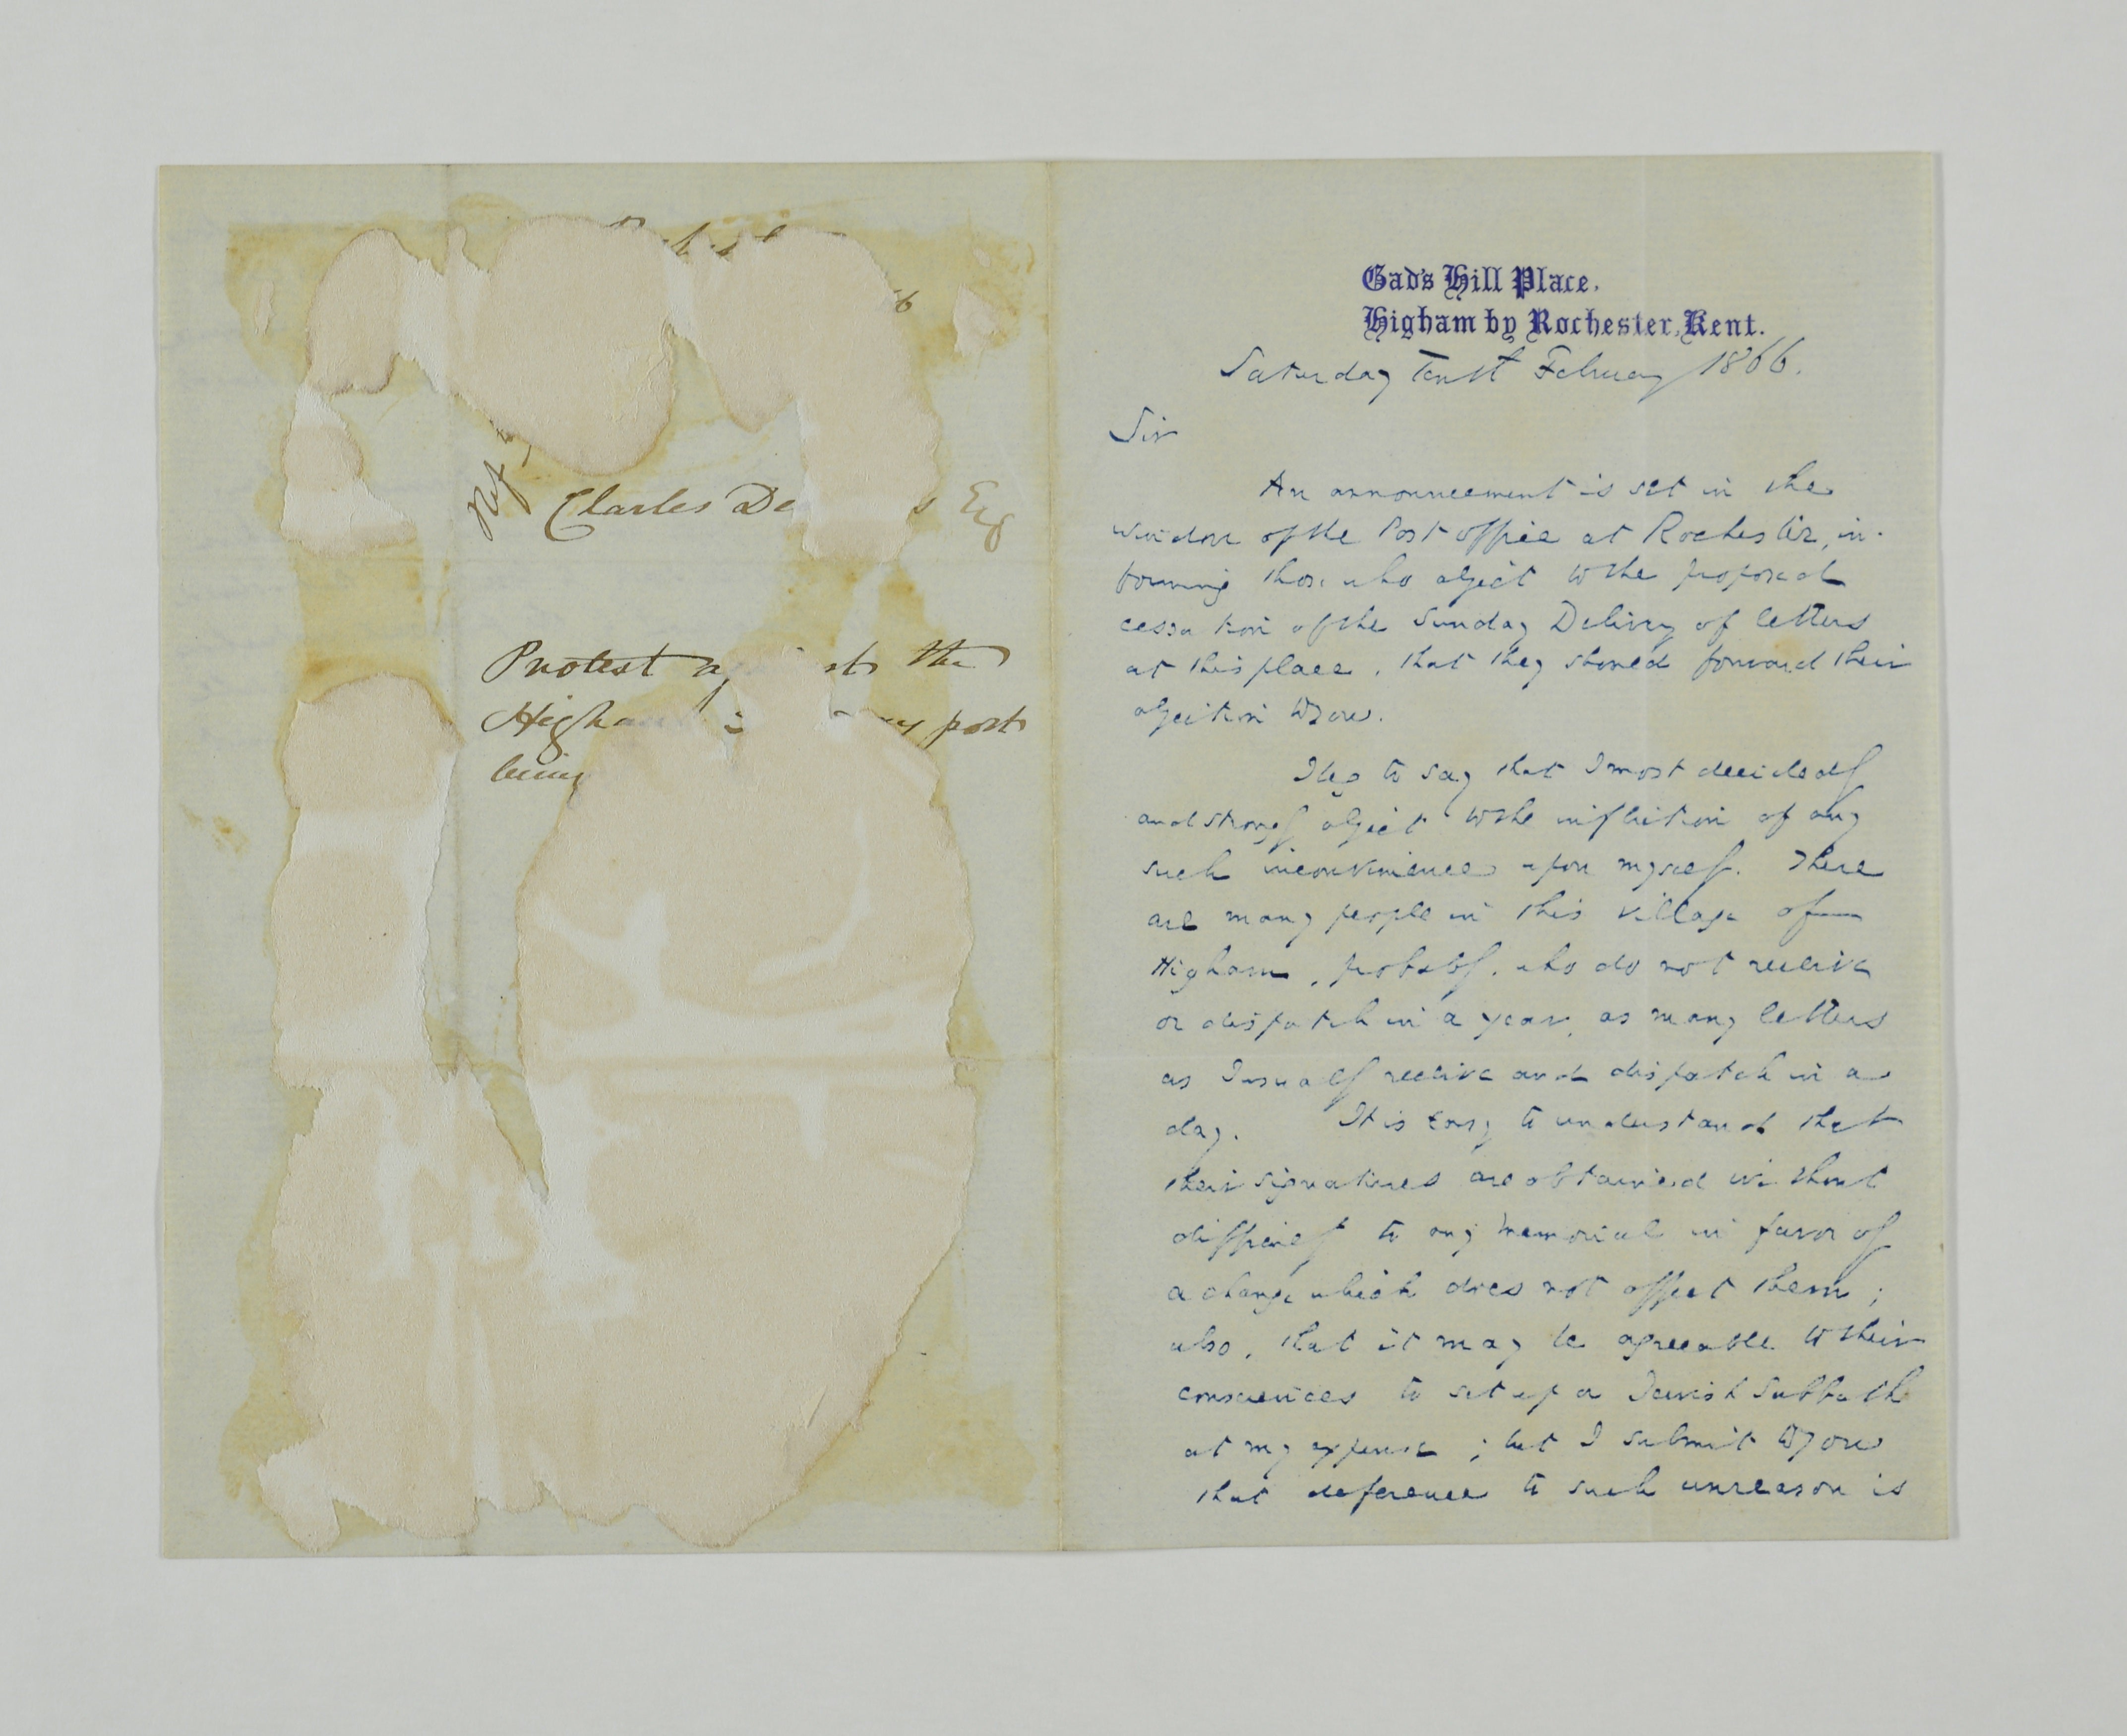 Charles De s Esq
Protest ag st the
Higha y post
being
Gad's Hill Place,
Higham by Rochester, Kent.
Saturday Tenth February 1866.
Sir
An announcement is set in the
window of the Post office at Rochester, in-
forming those who object to the proposed
cessation of the Sunday Delivery of letters
at this place, that they should forward their
objection to you.
I beg to say that I most decidedly
and strongly object to the infliction of any
such inconvenience upon myself. There
are many people in this village of
Higham, probably, who do not receive
or dispatch in a year, as many letters
as I usually receive and dispatch in a
day. It is easy to understand that
their signatures are obtained without
difficulty to any memorial in favor of
a change which does not affect them;
also, that it may be agreeable to their
consciences to set up a Jewish Sabbath
at my expense; but I submit to you
that deference to such unreason is